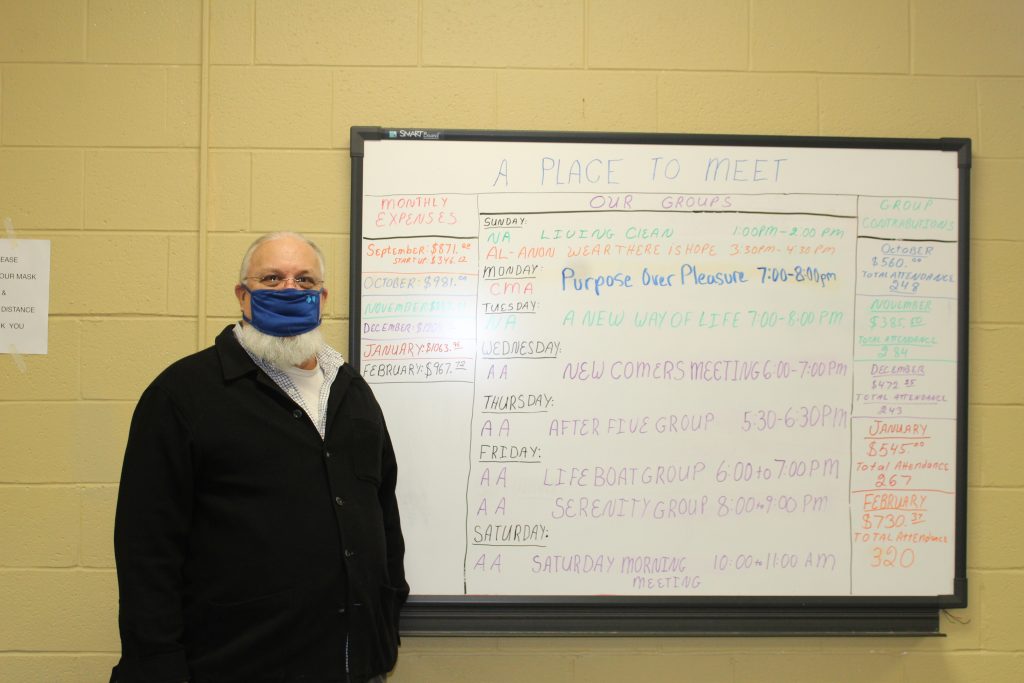 SMART Board
A PLACE TO MEET
MONTHLY
EXPENSES
September: $871.00
START UP: $346.
OCTOBER: $981.00
NOVEMBER:
DECEMBER:
JANUARY: $1063.
FEBRUARY: $967.
OUR GROUPS
SUNDAY:
NA LIVING CLEAN 1:00PM-2:00 PM
AL-ANON WEAR THERE IS HOPE 3:30PM-4:30PM
MONDAY:
CMA Purpose Over Pleasure 7:00-8:00pm
TUESDAY:
NA A NEW WAY OF LIFE 7:00-8:00PM
WEDNESDAY:
AA NEW COMERS MEETING 6:00-7:00PM
THURSDAY:
AA AFTER FIVE GROUP 5:30-6:30PM
FRIDAY:
AA LIFE BOAT GROUP 6:00 to 7:00PM
AA SERENITY GROUP 8:00 to 9:00 PM
SATURDAY:
AA SATURDAY MORNING 10:00 to 11:00 AM
MEETING
GROUP
CONTRIBUTIONS
OCTOBER
$560.00
TOTAL ATTENDANCE
248
NOVEMBER
$385.50
TOTAL ATTENDANCE
284
DECEMBER
$472.
TOTAL ATTENDANCE
243
JANUARY
$545.00
Total Attendance
267
FEBRUARY
$730.37
TOTAL Attendance
320
EASE
OUR MASK
&
DISTANCE
K YOU